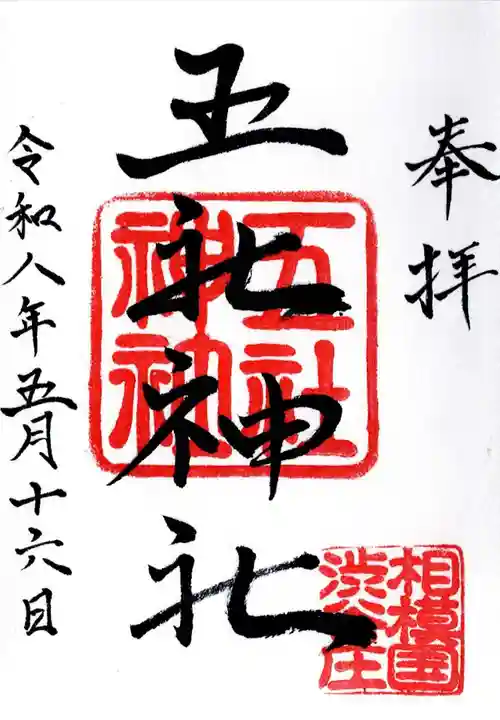 奉拝
五社神社
五社
神社
相模国
渋谷庄
令和八年五月十六日